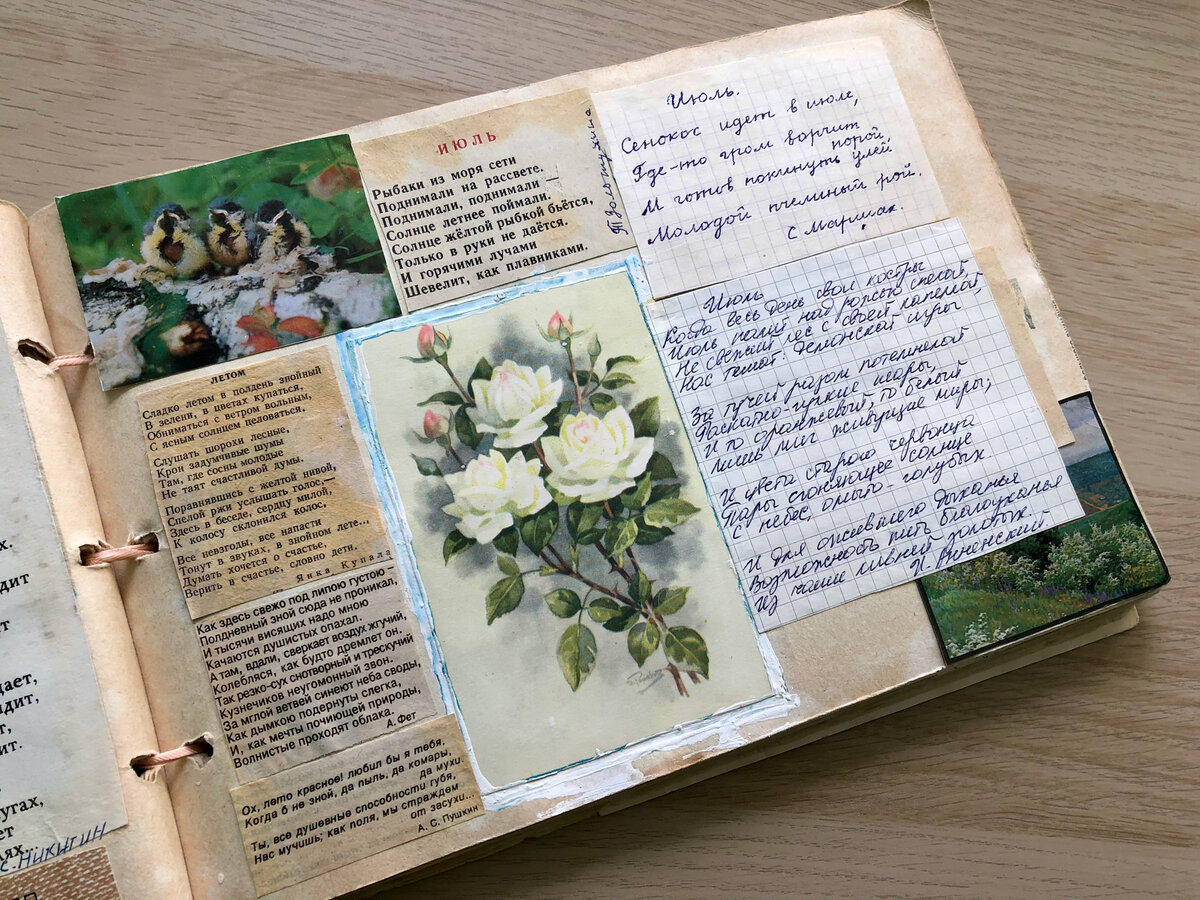 дит
ут
дает,
дит,
т,
ит.
угах,
ет
лях...
С. Никитин
ИЮЛЬ
Рыбаки из моря сети
Поднимали на рассвете.
Поднимали, поднимали —
Солнце летнее поймали.
Солнце жёлтой рыбкой бьётся,
Только в руки не даётся.
И горячими лучами
Шевелит, как плавниками.
Т Золотухина
Июль.
Сенокос идет в июле,
Где-то гром ворчит порой,
И готов покинуть улей
Молодой пчелиный рой.
С Маршак.
ЛЕТОМ
Сладко летом в полдень знойный
В зелени, в цветах купаться,
Обниматься с ветром вольным,
С ясным солнцем целоваться.
Слушать шорохи лесные,
Крон задумчивые шумы
Там, где сосны молодые
Не таят счастливой думы.
Поравнявшись с желтой нивой,
Спелой ржи услышать голос,—
Здесь в беседе, сердцу милой,
К колосу склонился колос,
Все невзгоды, все напасти
Тонут в звуках, в знойном лете...
Думать хочется о счастье,
Верить в счастье, словно дети.
Янка Купала
Как здесь свежо под липою густою —
Полдневный зной сюда не проникал,
И тысячи висящих надо мною
Качаются душистых опахал.
А там, вдали, сверкает воздух жгучий,
Колебляся, как будто дремлет он.
Так резко-сух снотворный и трескучий
Кузнечиков неугомонный звон.
За мглой ветвей синеют неба своды,
Как дымкою подернуты слегка,
И, как мечты почиющей природы,
Волнистые проходят облака.
А. Фет
Ох, лето красное! любил бы я тебя,
Когда б не зной, да пыль, да комары,
да мухи.
Ты, все душевные способности губя,
Нас мучишь; как поля, мы страждем
от засухи...
А. С. Пушкин
Июль
Когда весь день свои костры
Июль палит над рожью спелой,
Не свежий лес с своей капеллой,
Нас тешат: демонской игры
За тучей разом потемнелой
Раскатно-гулкие пиры,
И то оранжевый, то белый
Лишь миг живущие миры;
И цвета старого червонца
Пары сгоняющее солнце
С небес омыто-голубых
И для ожившего дыханья
Возможность пить благоуханья
Из чаши ливней золотых.
И. Анненский